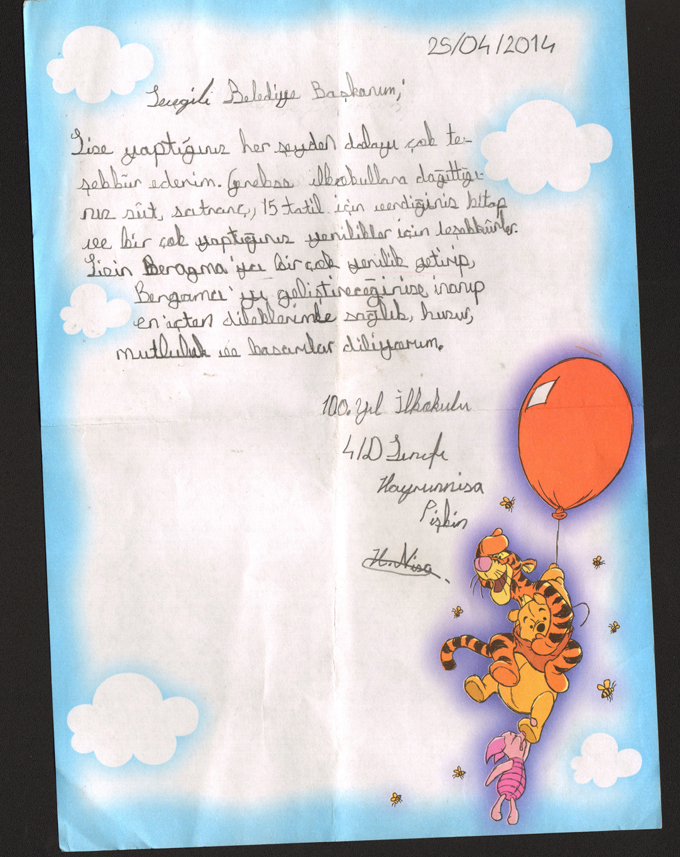 25/04/2014
Sevgili Belediye Başkanım,
Size yaptığınız her şeyden dolayı çok te-
şekkür ederim. Gerekse ilkokullara dağıttığı-
nız süt, satranç, 15 tatil için verdiğiniz kitap
ve bir çok yaptığınız yenilikler için teşekkürler.
Sizin Beragma'ya bir çok yenilik getirip,
Bergama'yı geliştireceğinize inanıp
en içten dileklerimle sağlık, huzur,
mutluluk ve başarılar diliyorum.
100. Yıl İlkokulu
4/D Sınıfı
Hayrunnisa
Pişkin
H.Nisa